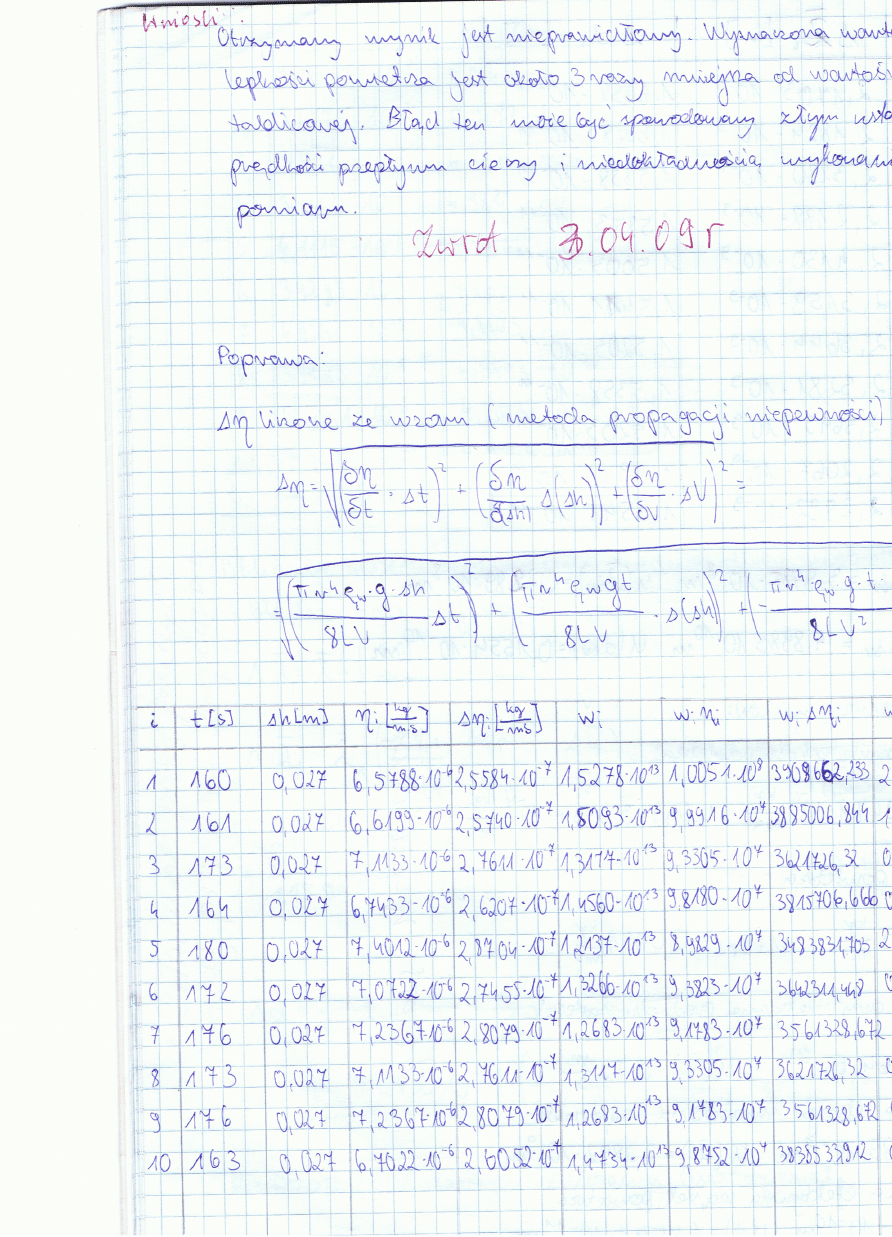 Wnioski:
Otrzymany wynik jest nieprawidłowy. Wyznaczona wart
lepkości powietrza jest około 3 razy mniejsza od wartoś
tablicowej. Błąd ten może być spowodowany złym usta
prędkości przepływu cieczy i niedokładnością wykonan
pomiaru.
Zwrot 3.04.09r
Poprawa:
Δη liczone ze wzoru (metoda propagacji niepewności)
Δη = √((δη/δt · Δt)² + (δη/δ(Δh) Δ(Δh))² + (δη/δV · ΔV)²) =
= √((πr⁴ρw·g·Δh/8LV Δt)² + (πr⁴ρwgt/8LV · Δ(Δh))² + (-πr⁴·ρw·g·t·/8LV²
i t[s] Δh[m] ηi [kg/m·s] Δηi [kg/m·s] wi wi ηi wi Δηi w
1 160 0,027 6,5788·10⁻⁶ 2,5584·10⁻⁷ 1,5278·10¹³ 1,0051·10⁸ 3908662,233 2
2 161 0,027 6,6199·10⁻⁶ 2,5740·10⁻⁷ 1,5093·10¹³ 9,9916·10⁷ 3885006,844 1
3 173 0,027 7,1133·10⁻⁶ 2,7611·10⁻⁷ 1,3117·10¹³ 9,3305·10⁷ 3621726,32 0
4 164 0,027 6,7433·10⁻⁶ 2,6207·10⁻⁷ 1,4560·10¹³ 9,8180·10⁷ 3815706,666 0
5 180 0,027 7,4012·10⁻⁶ 2,8704·10⁻⁷ 1,2137·10¹³ 8,9829·10⁷ 3483831,703 2
6 172 0,027 7,0722·10⁻⁶ 2,7455·10⁻⁷ 1,3266·10¹³ 9,3823·10⁷ 3642311,448 0
7 176 0,027 7,2367·10⁻⁶ 2,8079·10⁻⁷ 1,2683·10¹³ 9,1783·10⁷ 3561328,672
8 173 0,027 7,1133·10⁻⁶ 2,7611·10⁻⁷ 1,3117·10¹³ 9,3305·10⁷ 3621726,32 0
9 176 0,027 7,2367·10⁻⁶ 2,8079·10⁻⁷ 1,2683·10¹³ 9,1783·10⁷ 3561328,672
10 163 0,027 6,7022·10⁻⁶ 2,6052·10⁻⁷ 1,4734·10¹³ 9,8752·10⁷ 3838533,912 0